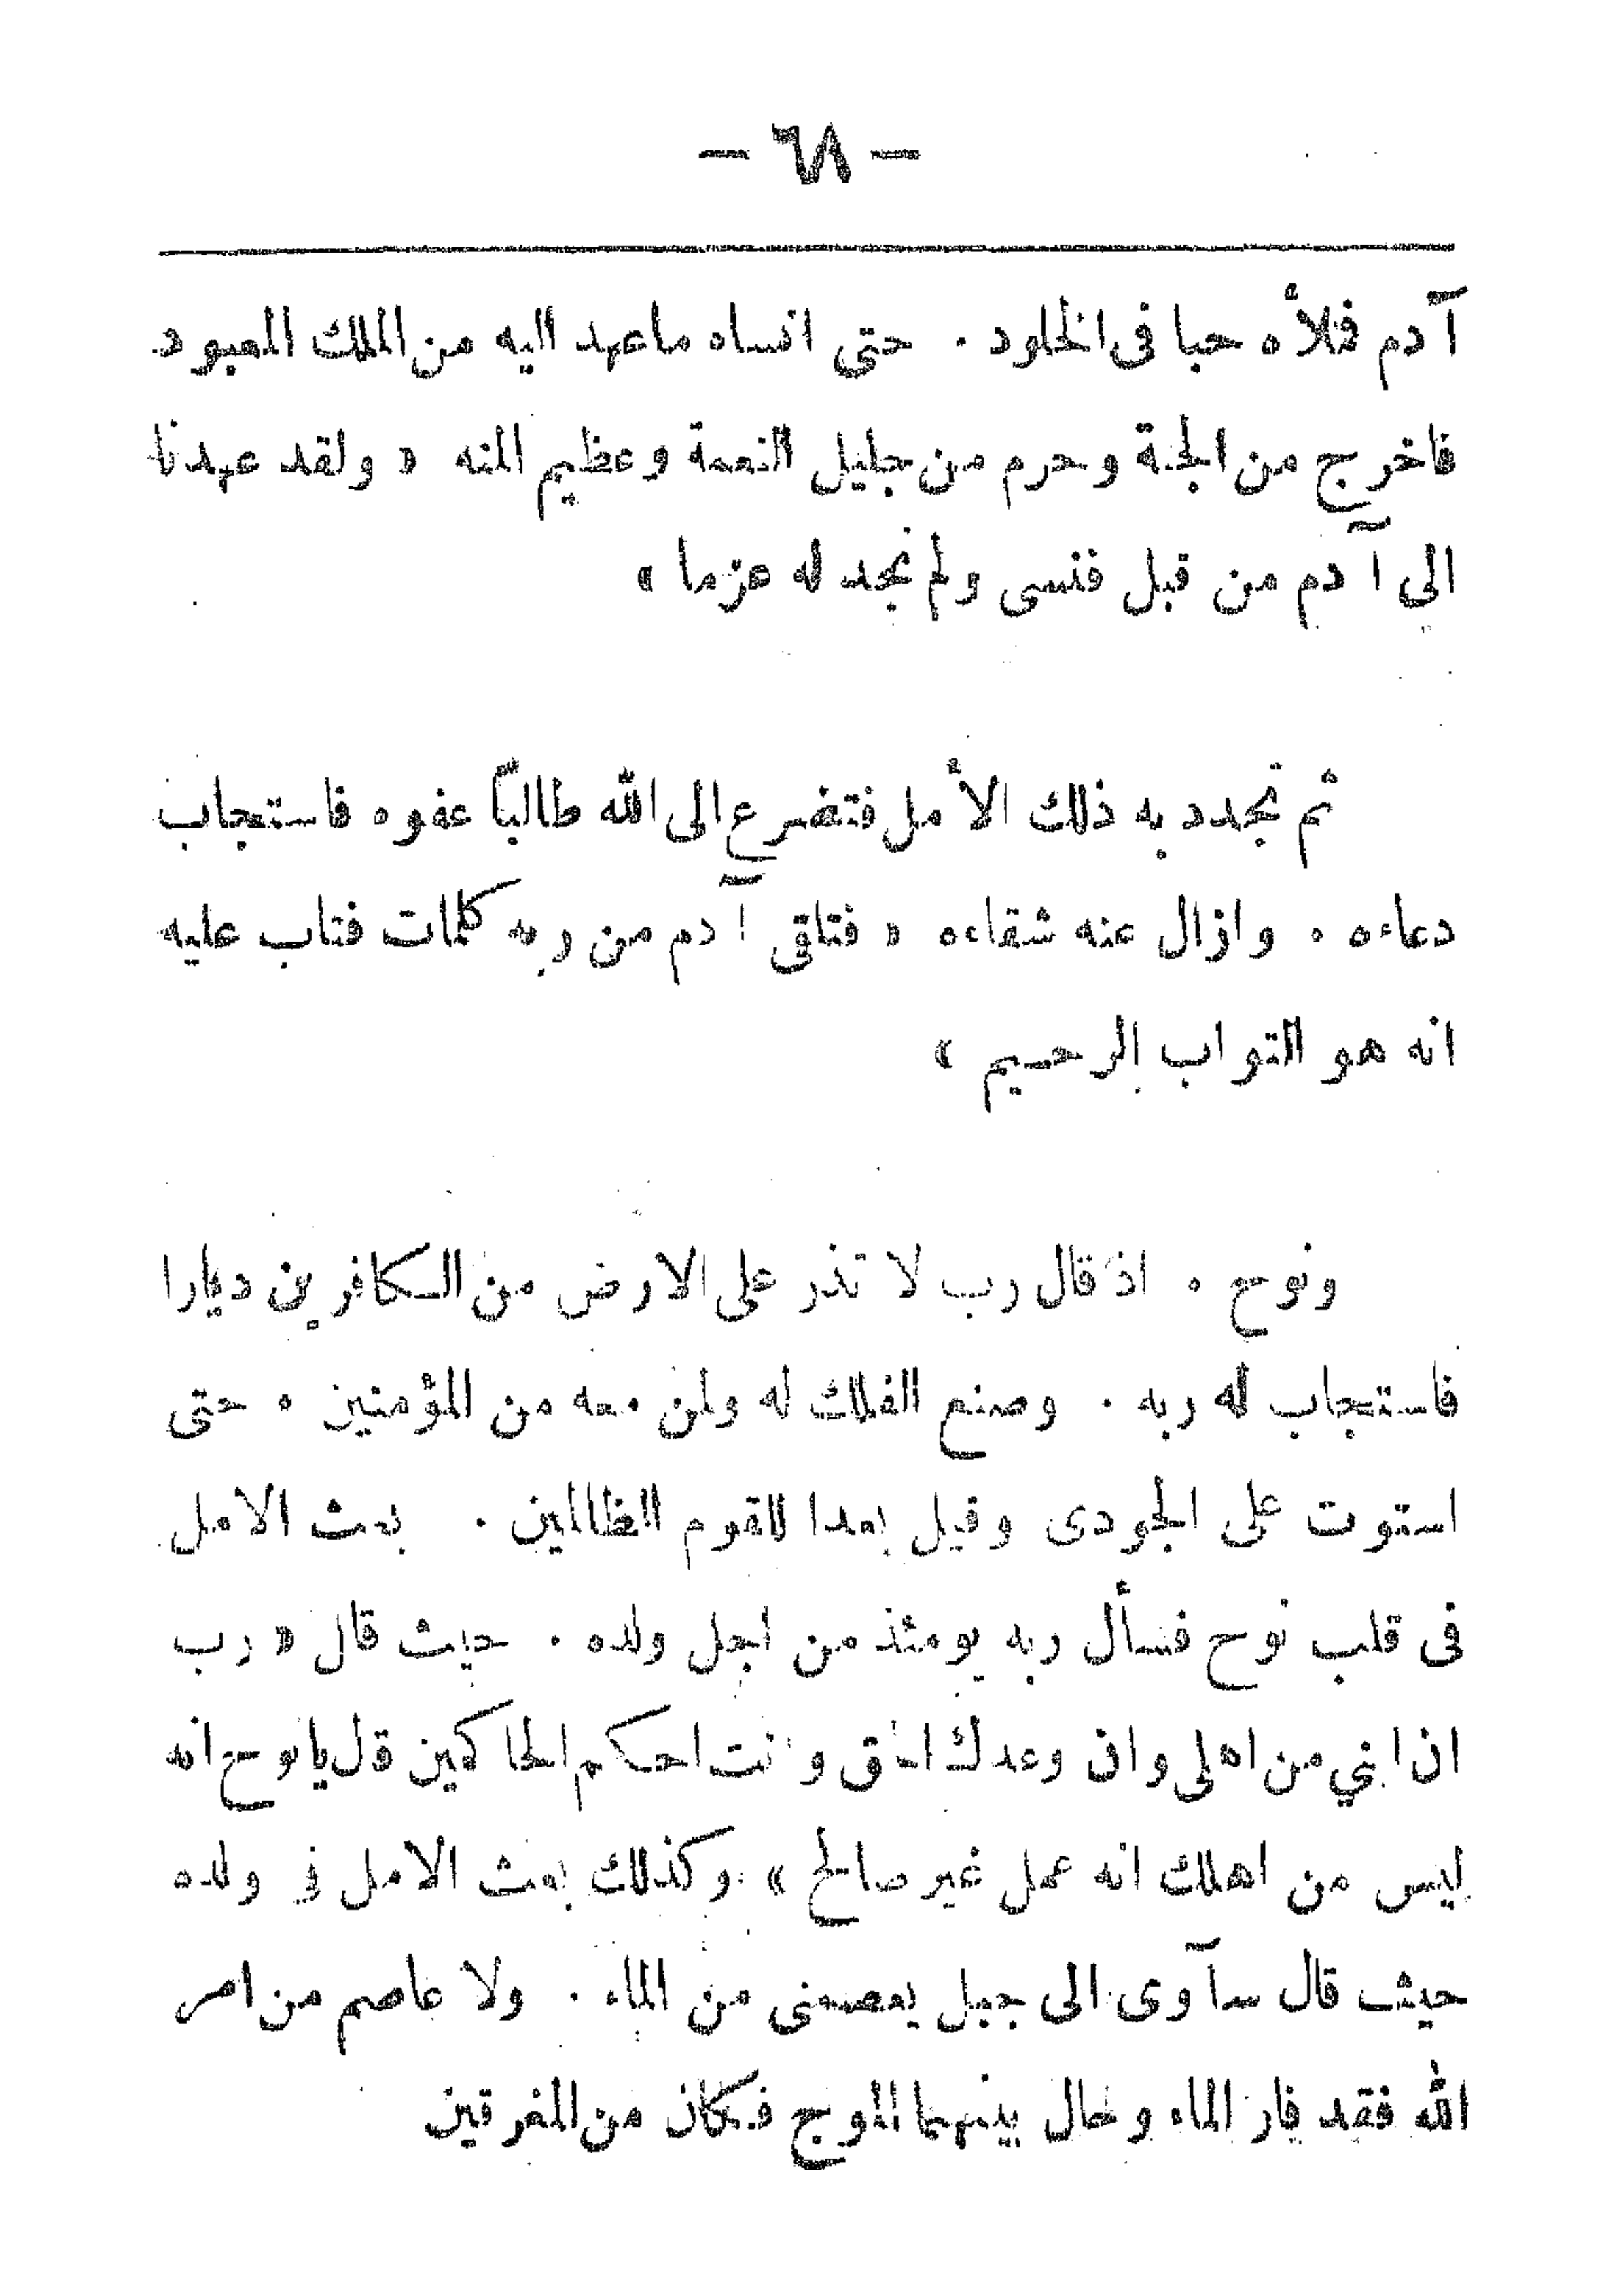 — ٦٨ —
آدم فملأه حبا فى الخلود . حتى انساه ماعهد اليه من الملك المعبود
فاخرج من الجنة وحرم من جليل النعمة وعظيم المنه « ولقد عهدنا
الى آدم من قبل فنسى ولم نجد له عزما »
ثم تجدد به ذلك الأمل فتضرع الى الله طالباً عفوه فاستجاب
دعاءه . وازال عنه شقاءه « فتلقى آدم من ربه كلمات فتاب عليه
انه هو التواب الرحيم »
ونوح . اذ قال رب لا تذر على الارض من الكافرين ديارا
فاستجاب له ربه . وصنع الفلك له ولمن معه من المؤمنين . حتى
استوت على الجودى وقيل بعدا للقوم الظالمين . بعث الامل
فى قلب نوح فسأل ربه يومئذ من اجل ولده . حيث قال « رب
ان ابني من اهلى وان وعدك الحق وانت احكم الحاكمين قل يانوح انه
ليس من اهلك انه عمل غير صالح » وكذلك بعث الامل فى ولده
حيث قال سآوى الى جبل يعصمنى من الماء . ولا عاصم من امر
الله فقد فار الماء وحال بينهما الموج فكان من المغرقين